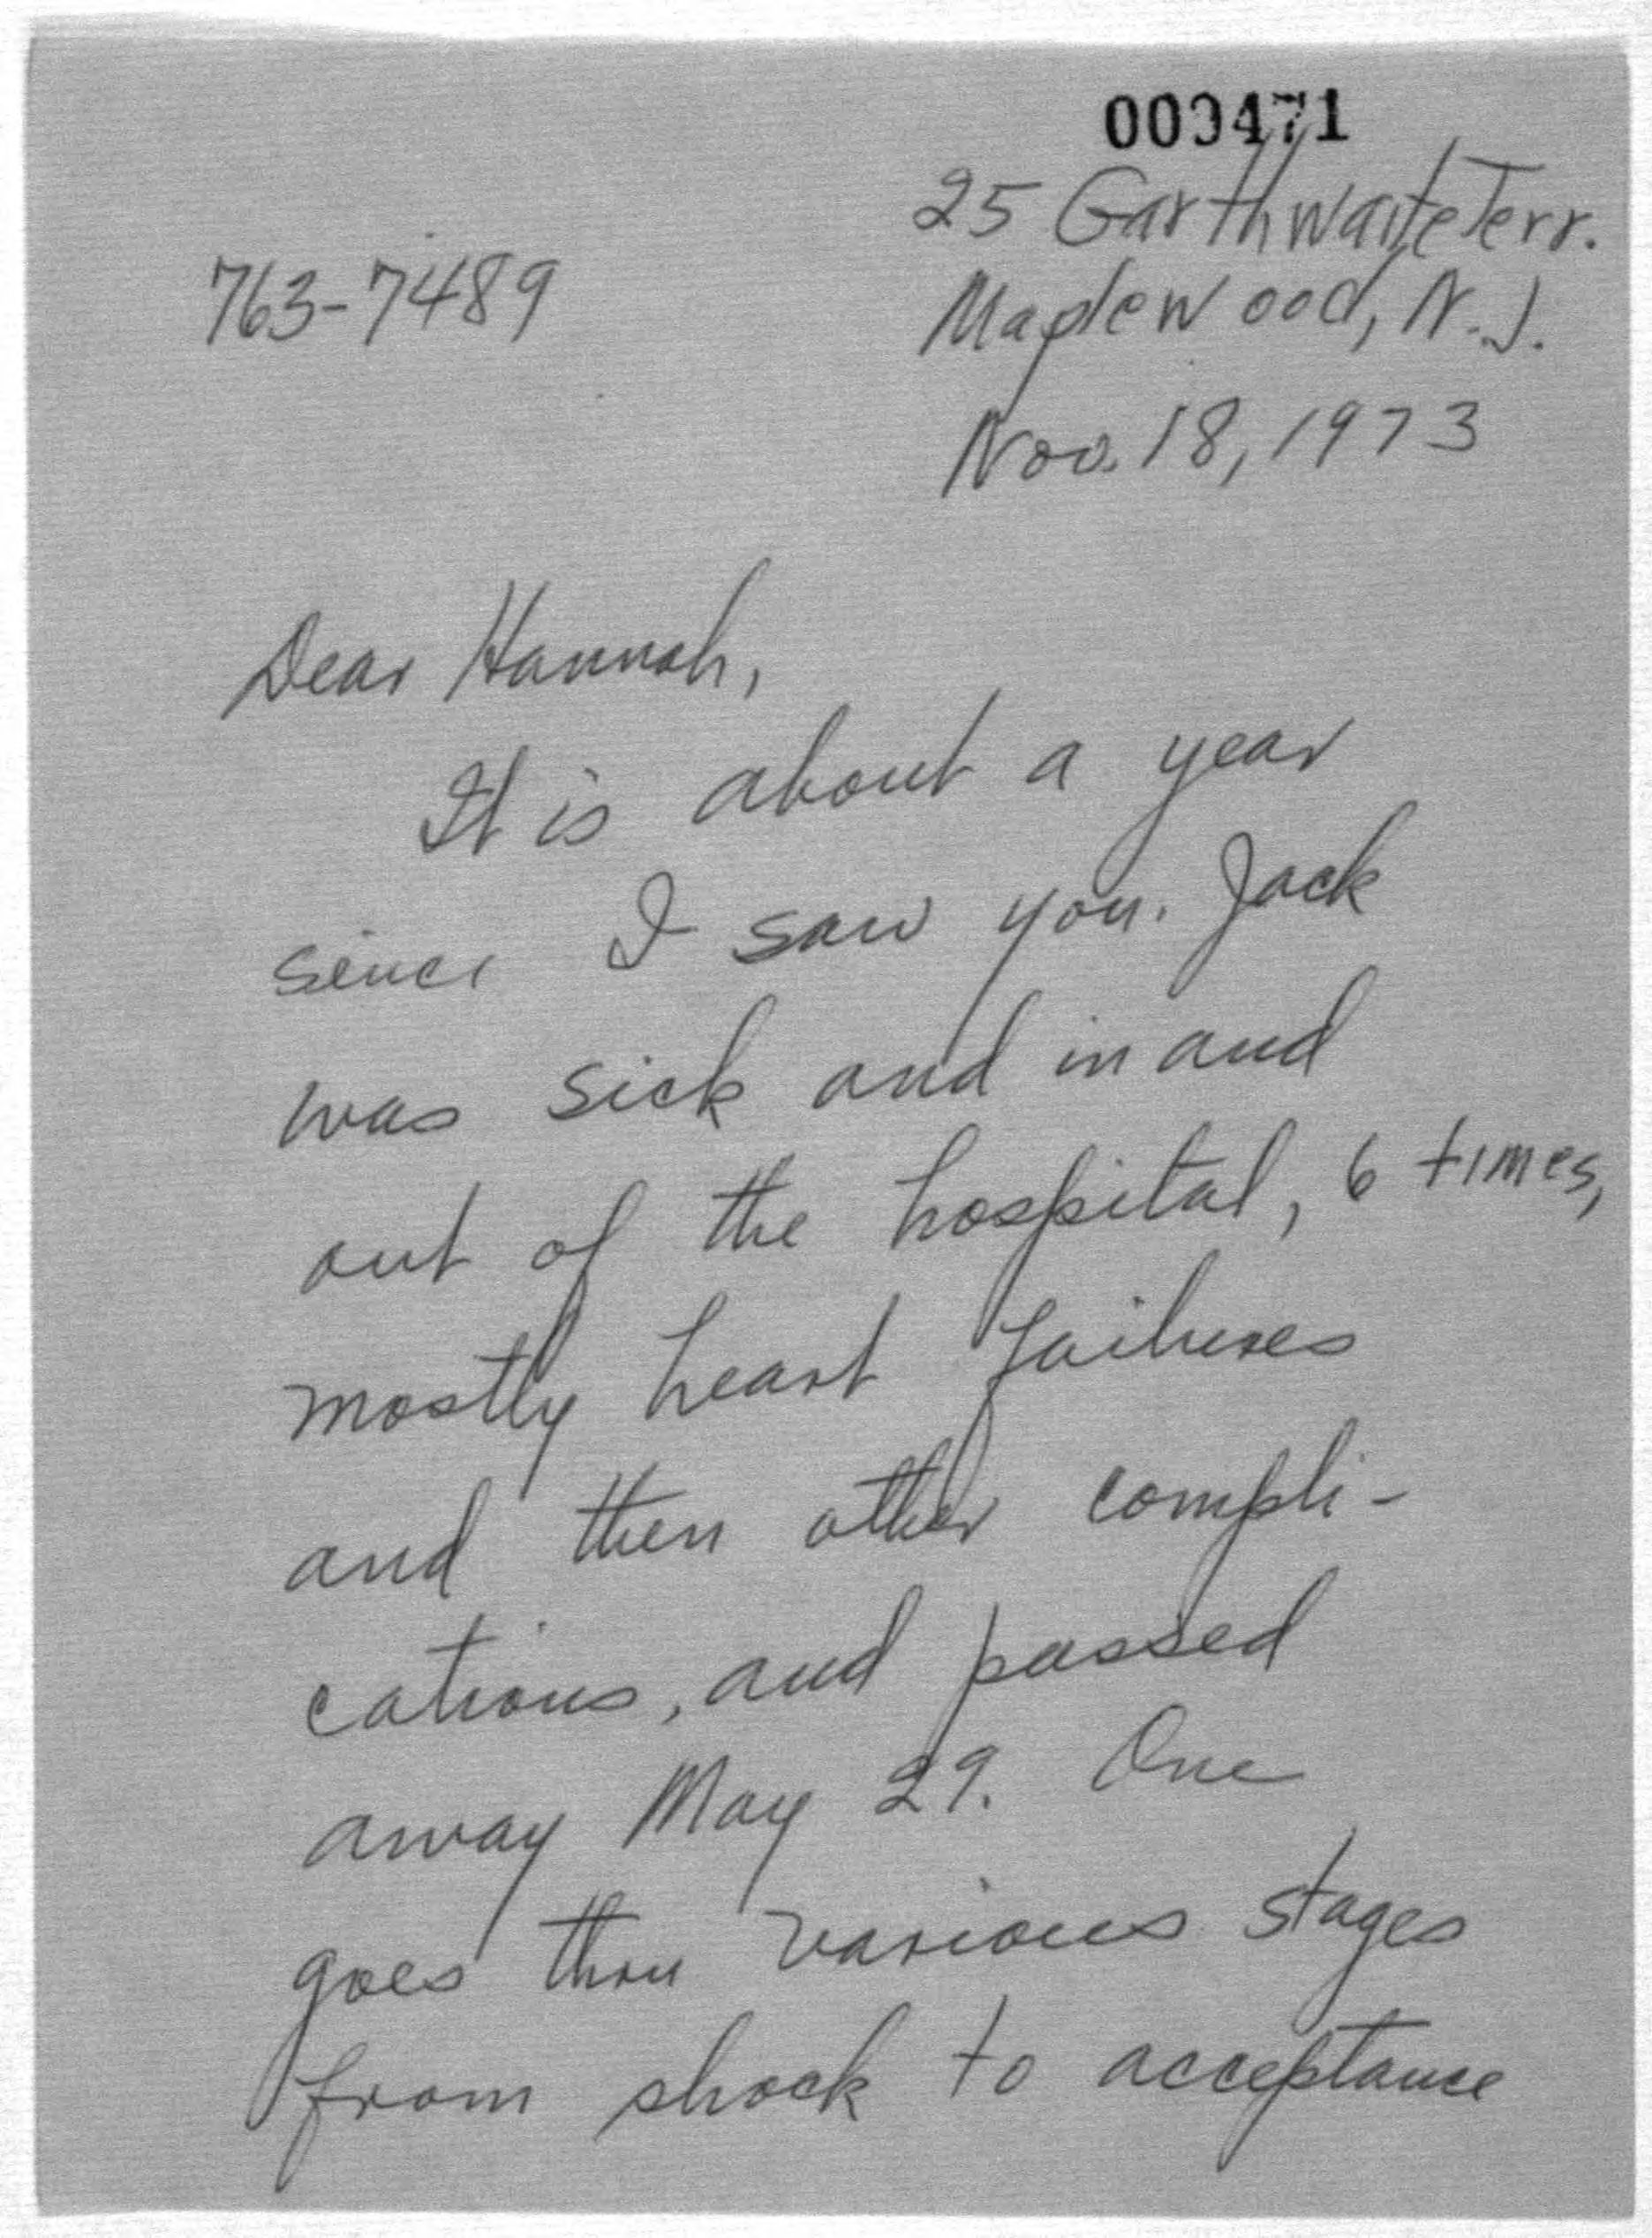 000471
25 Garthwaite Terr.
763-7489
Maplewood, N.J.
Nov. 18, 1973
Dear Hannah,
It is about a year
since I saw you. Jack
was sick and in and
out of the hospital, 6 times,
mostly heart failures
and then other compli-
cations, and passed
away May 29. One
goes thru various stages
from shock to acceptance